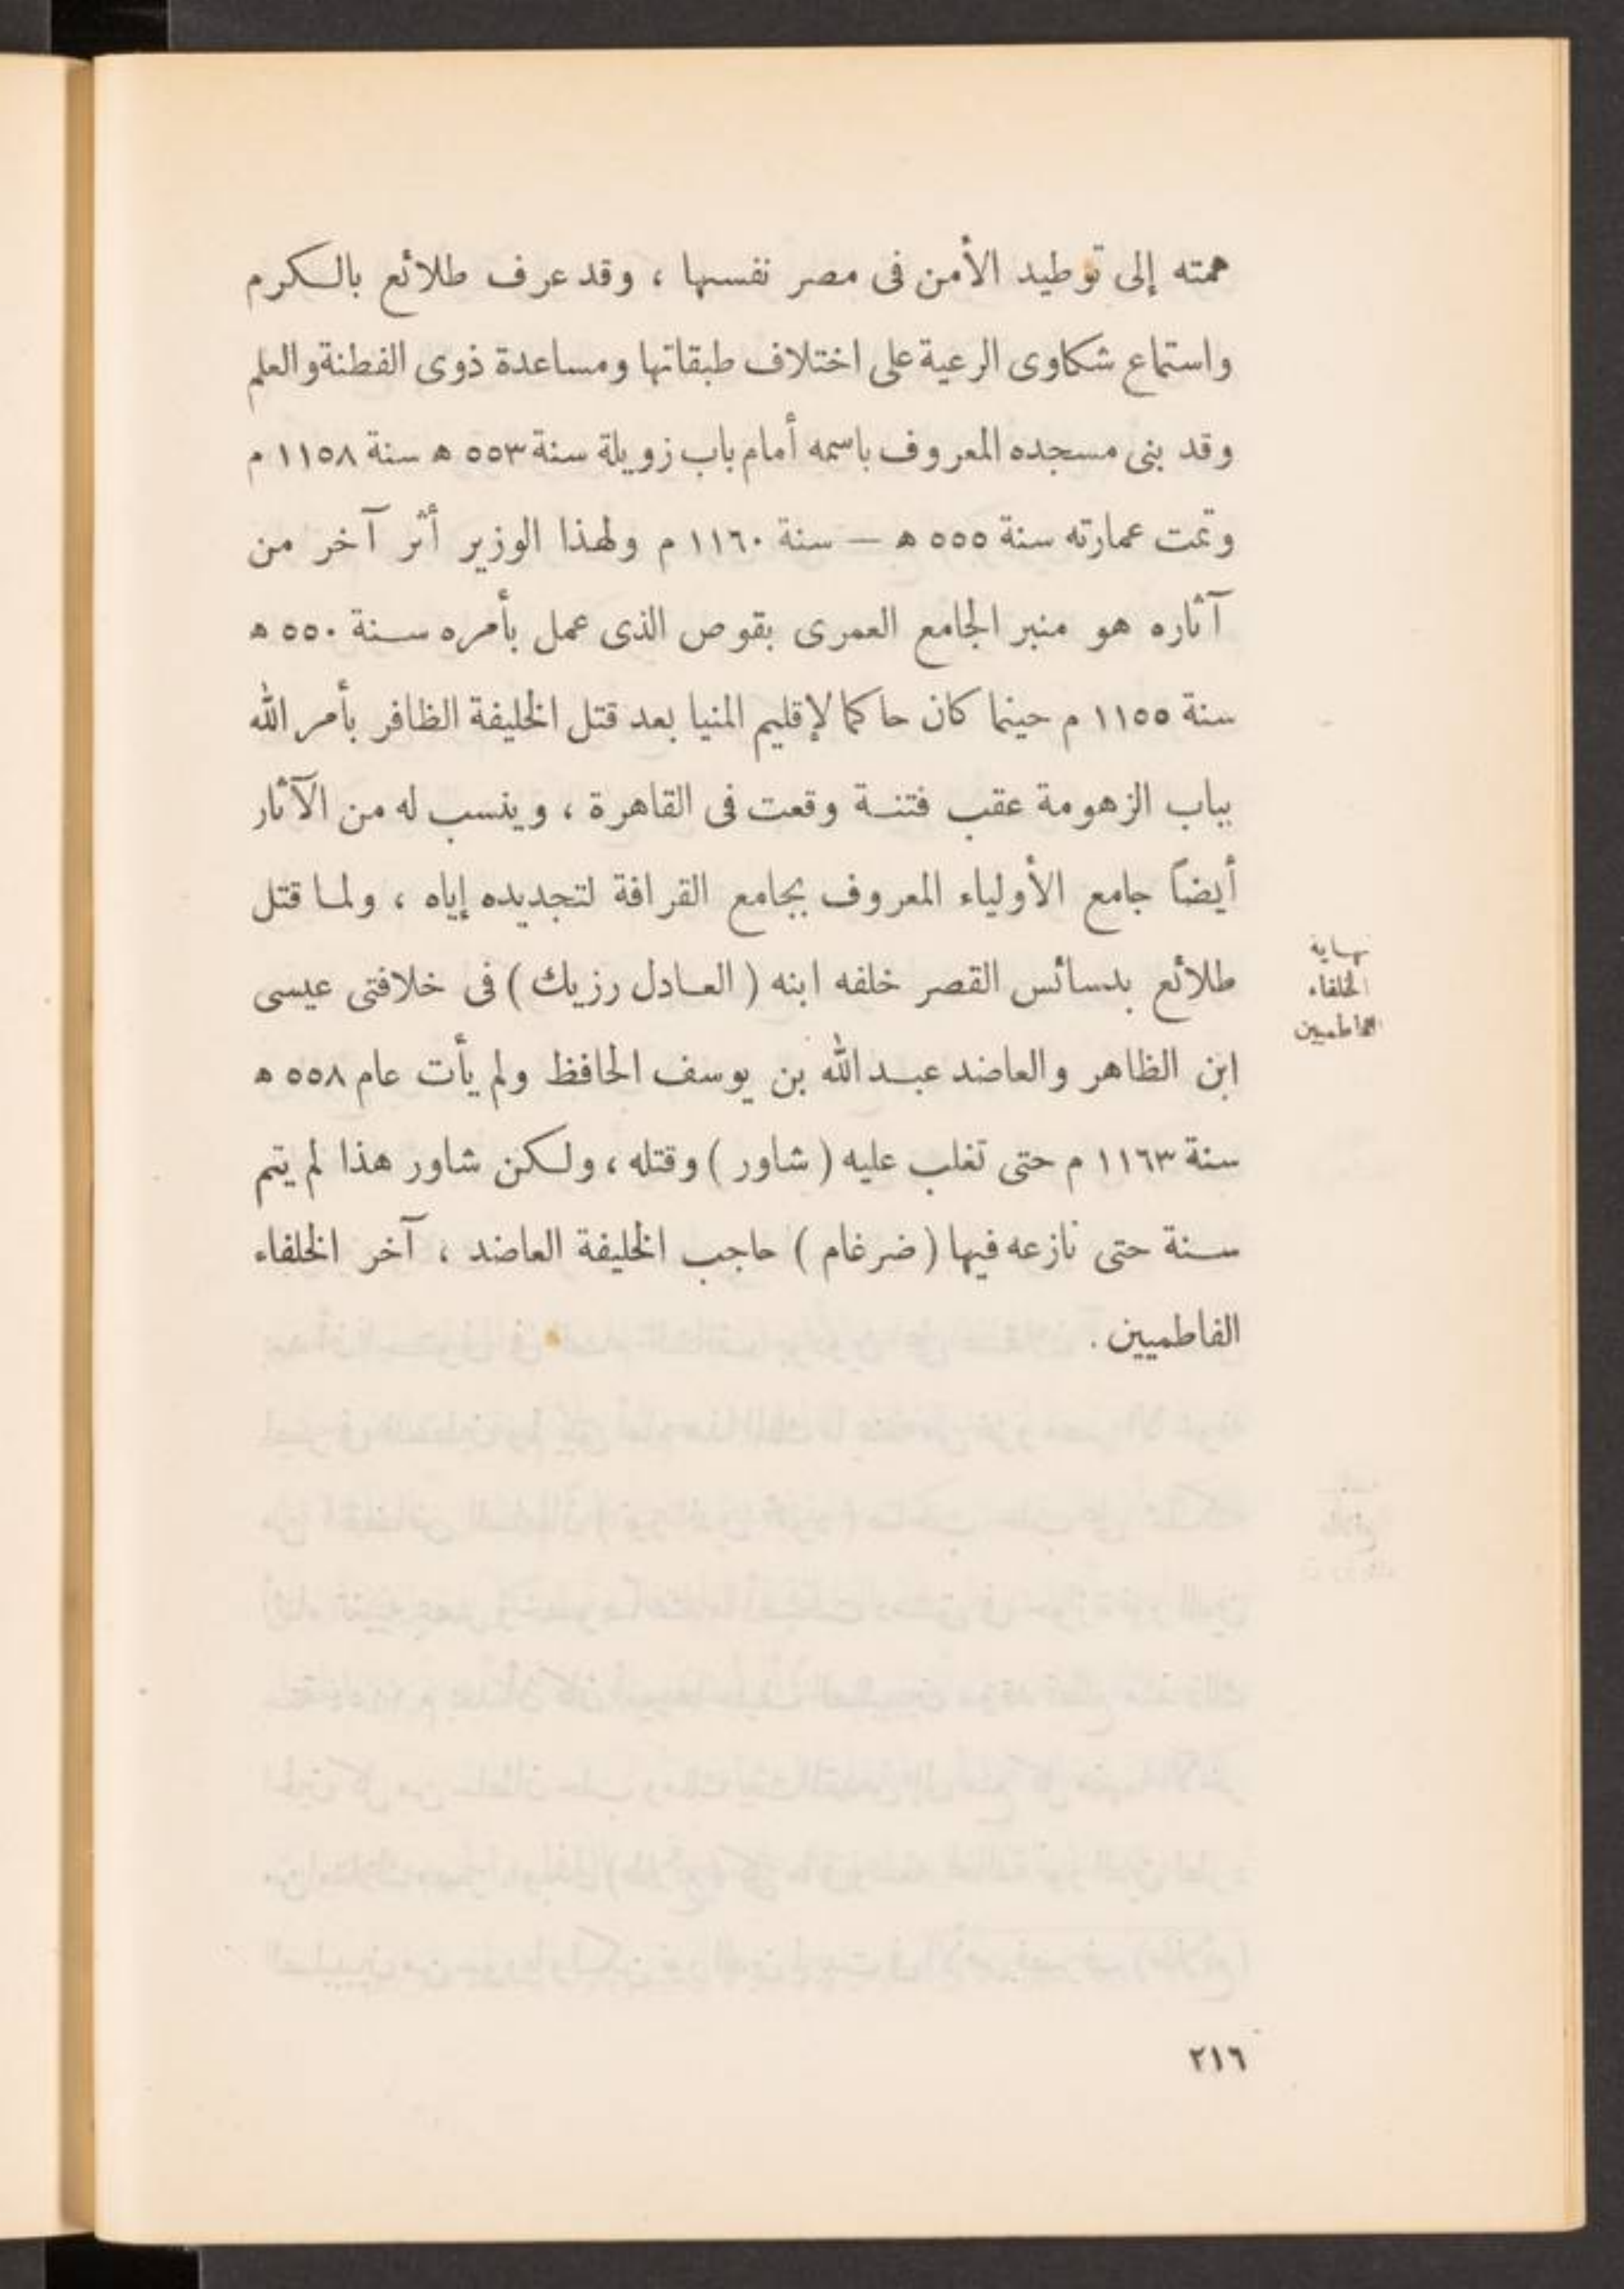 همته إلى توطيد الأمن فى مصر نفسها ، وقد عرف طلائع بالكرم
واستماع شكاوى الرعية على اختلاف طبقاتها ومساعدة ذوى الفطنة والعلم
وقد بنى مسجده المعروف باسمه أمام باب زويلة سنة ٥٥٣ ه سنة ١١٥٨ م
وتمت عمارته سنة ٥٥٥ ه — سنة ١١٦٠ م ولهذا الوزير أثر آخر من
آثاره هو منبر الجامع العمرى بقوص الذى عمل بأمره سنة ٥٥٠ ه
سنة ١١٥٥ م حينما كان حاكما لإقليم المنيا بعد قتل الخليفة الظافر بأمر الله
بباب الزهومة عقب فتنة وقعت فى القاهرة ، وينسب له من الآثار
أيضاً جامع الأولياء المعروف بجامع القرافة لتجديده إياه ، ولما قتل
طلائع بدسائس القصر خلفه ابنه ( العادل رزيك ) فى خلافتى عيسى
ابن الظاهر والعاضد عبد الله بن يوسف الحافظ ولم يأت عام ٥٥٨ ه
سنة ١١٦٣ م حتى تغلب عليه ( شاور ) وقتله ، ولكن شاور هذا لم يتم
سنة حتى نازعه فيها ( ضرغام ) حاجب الخليفة العاضد ، آخر الخلفاء
الفاطميين .
نهاية
الخلفاء
الفاطميين
٢١٦